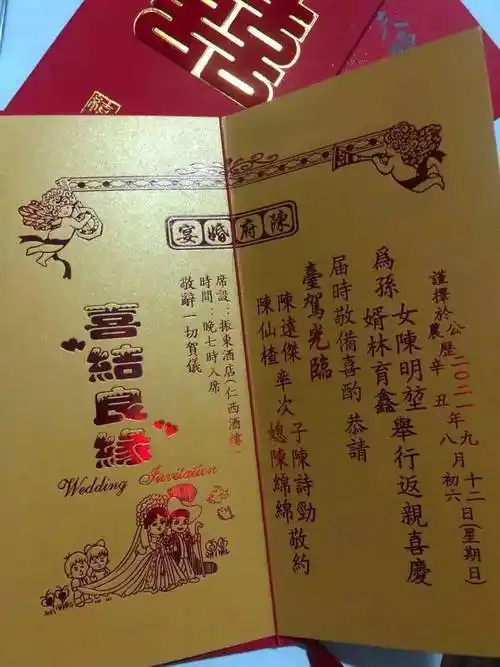 囍
陳府婚宴
謹擇於公曆二〇二一年九月十二日(星期日)
農辛丑八月初六
爲孫女陳明堃舉行返親喜慶
婿林育鑫
届時敬備喜酌 恭請
臺駕光臨
陳遠傑率次子陳詩勁敬約
陳仙楂媳陳綿綿
席設：振東酒店(仁西酒樓)
時間：晚七時入席
敬辭一切賀儀
喜結良緣
Wedding Invitation